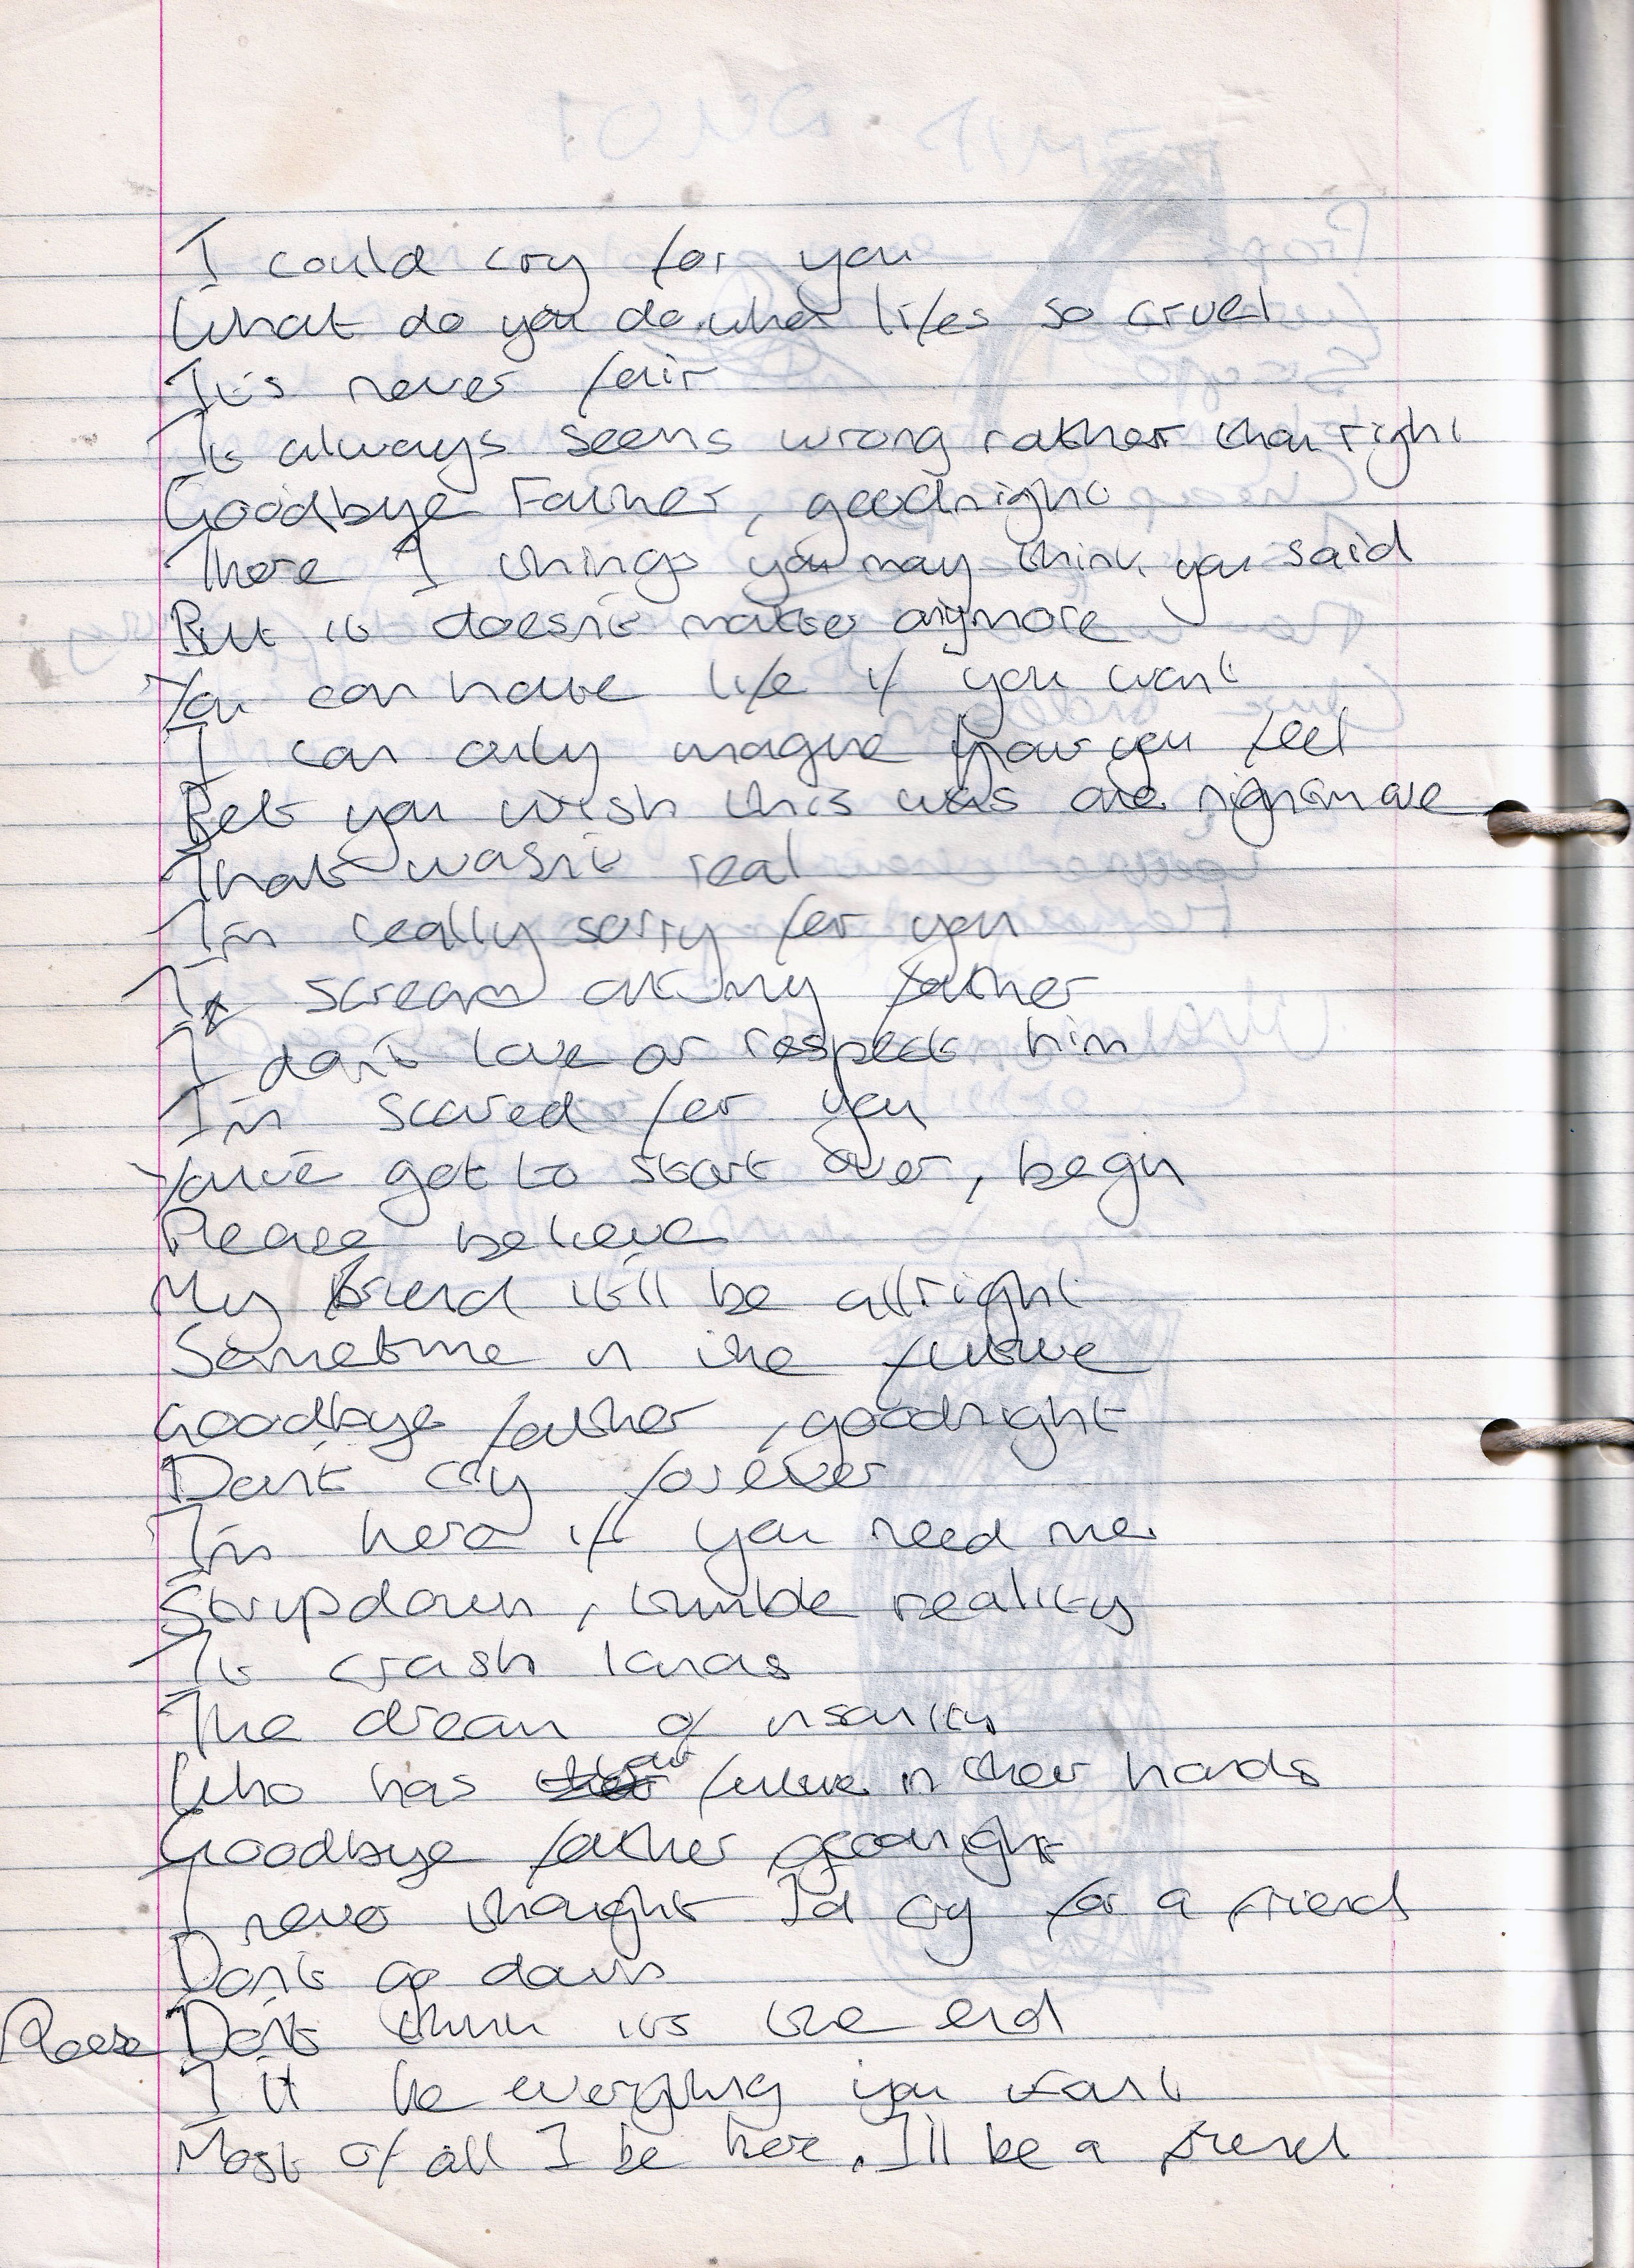 I could cry for you
What do you do when lifes so cruel
It's never fair
It always seems wrong rather than right
Goodbye Father, goodnight
There I things you may think you said
But it doesn't matter anymore
You can have life if you want
I can only imagine how you feel
Bet you wish this was one nightmare
That wasn't real
I'm really sorry for you
I scream at my father
I don't love or respect him
I'm scared for you
You've got to start over, begin
Please believe
My friend it'll be allright
Sometime in the future
Goodbye father, goodnight
Don't cry forever
I'm here if you need me
Stripdown, tumble reality
It crash lands
The dream of insanity
Who has our future in their hands
Goodbye father, goodnight
I never thought I'd cry for a friend
Don't go down
Please Don't think its the end
I'll be everything you want
Most of all I be here, I'll be a friend